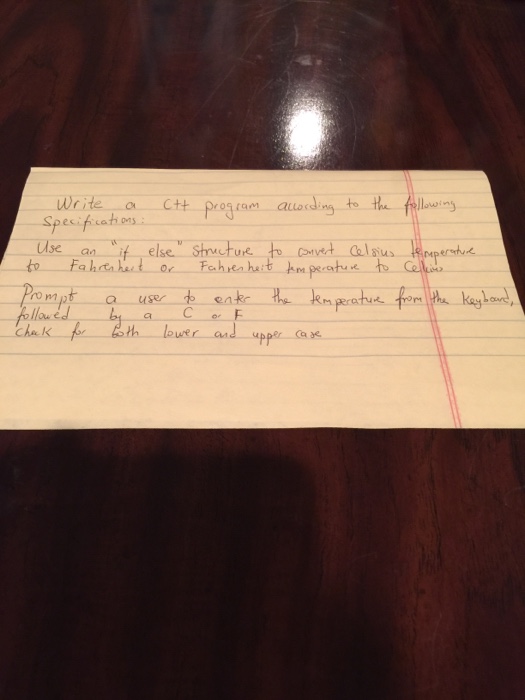 Write a C++ program according to the following
Specifications:
Use an "if else" structure to convert Celsius temperature
to Fahrenheit or Fahrenheit temperature to Celsius
Prompt a user to enter the temperature from the keyboard,
followed by a C or F
check for both lower and upper case